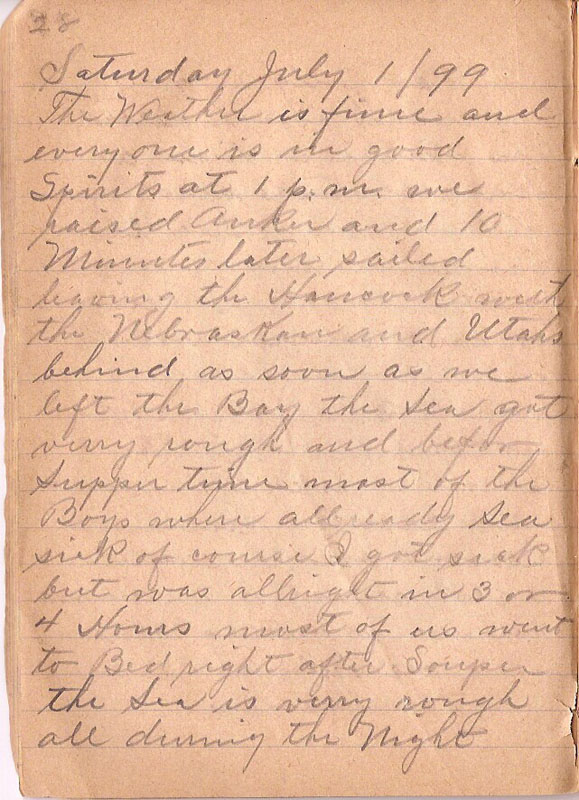 28
Saturday July 1/99
The Weather is fine and
everyone is in good
Spirits at 1 p.m. we
raised Anker and 10
Minutes later sailed
leaving the Hancock with
the Nebraskan and Utahs
behind as soon as we
left the Bay the Sea got
verry rough and befor
Supper time most of the
Boys where allready Sea
sick of course I got sick
but was allright in 3 or
4 Hours most of us went
to Bed right after Souper
the Sea is verry rough
all durring the Night